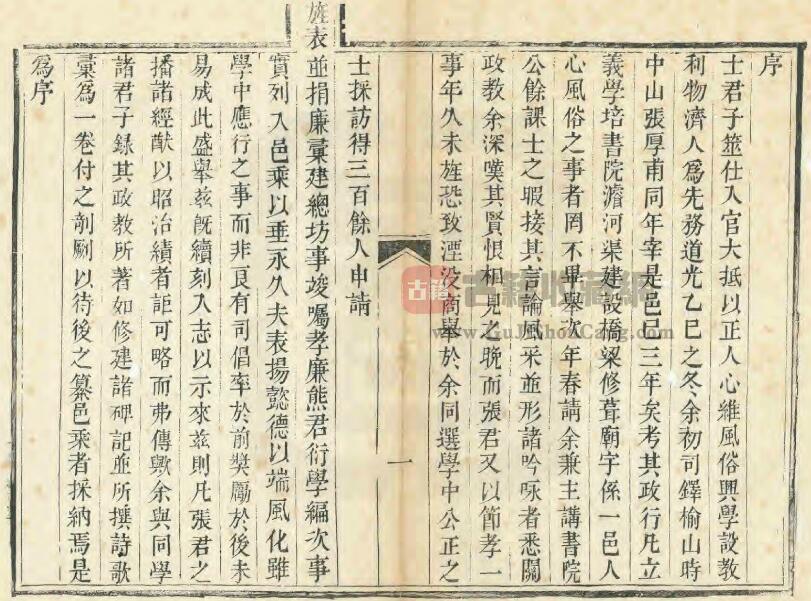 序
士君子筮仕入官大抵以正人心維風俗興學設教
利物濟人爲先務道光乙巳之冬余初司鐸榆山時
中山張厚甫同年宰是邑已三年矣考其政行凡立
義學培書院濬河渠建設橋梁修葺廟宇係一邑人
心風俗之事者罔不畢舉次年春請余兼主講書院
公餘課士之暇接其言論風采並形諸吟咏者悉關
政教余深嘆其賢恨相見之晚而張君又以節孝一
事年久未旌恐致湮没商舉於余同選學中公正之
一
士採訪得三百餘人申請
旌表並捐廉彙建總坊事竣囑孝廉熊君衍學編次事
實列入邑乘以垂永久夫表揚懿德以端風化雖
學中應行之事而非良有司倡率於前奬勵於後未
易成此盛舉兹旣續刻入志以示來兹則凡張君之
播諸經猷以昭治績者詎可略而弗傳歟余與同學
諸君子録其政教所著如修建諸碑記並所撰詩歌
彙爲一卷付之剞劂以待後之纂邑乘者採納焉是
爲序
古籍
古籍收藏網
www.GuJiShouCang.com